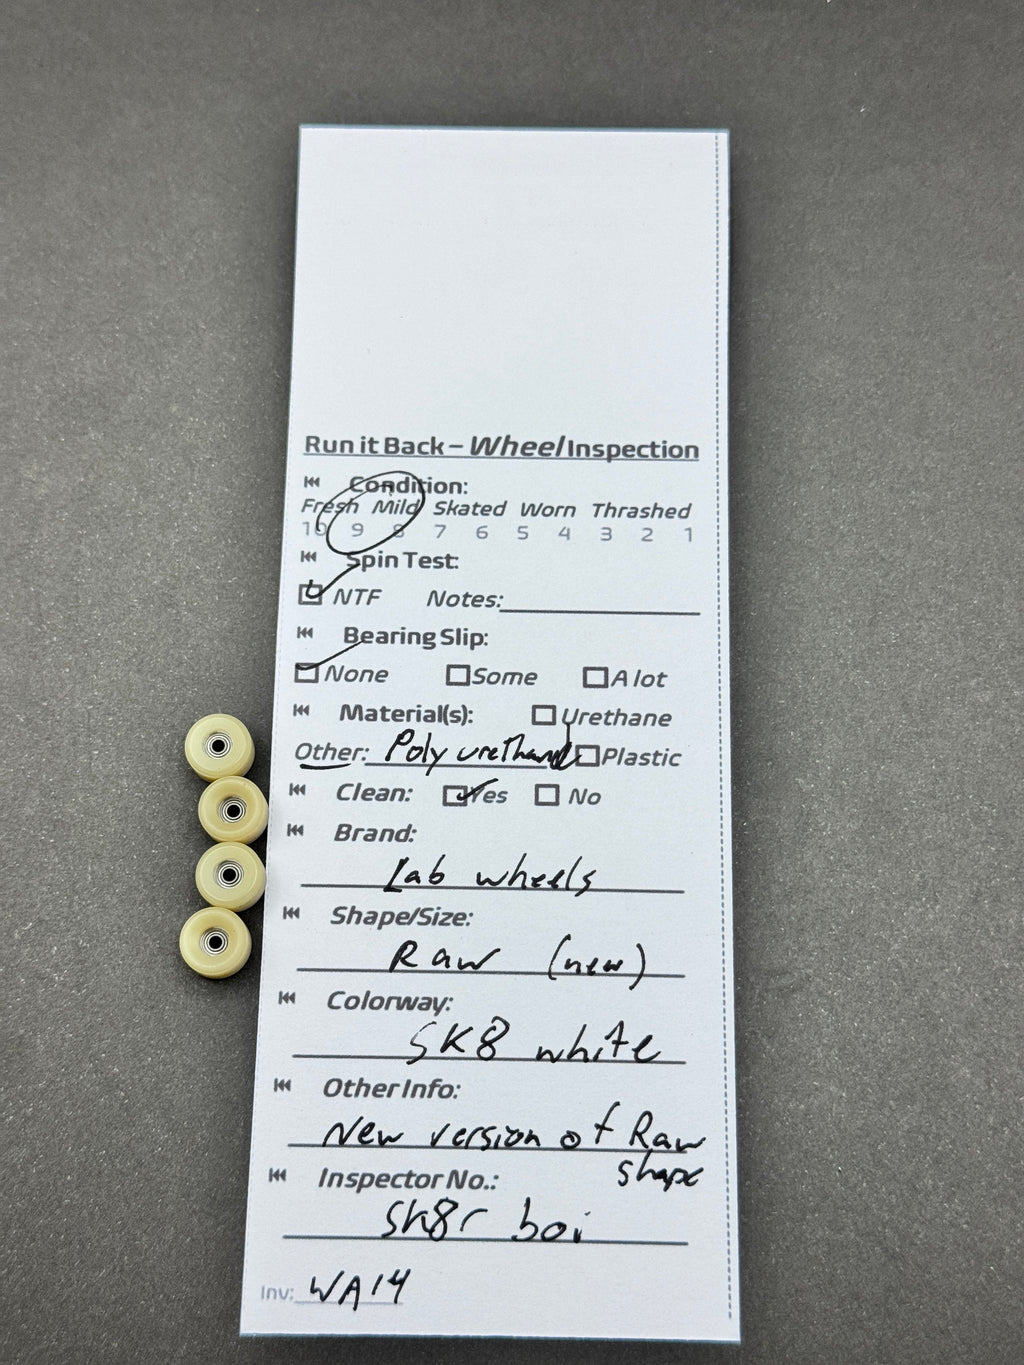 Run it Back – Wheel Inspection
Condition:
Fresh Mild Skated Worn Thrashed
10 9 8 7 6 5 4 3 2 1
Spin Test:
NTF Notes:
Bearing Slip:
None Some A lot
Material(s): Urethane
Other: Polyurethane Plastic
Clean: Yes No
Brand:
Lab wheels
Shape/Size:
Raw (new)
Colorway:
SK8 white
Other Info:
New version of Raw
shape
Inspector No.:
Sk8r boi
Inv: WA14